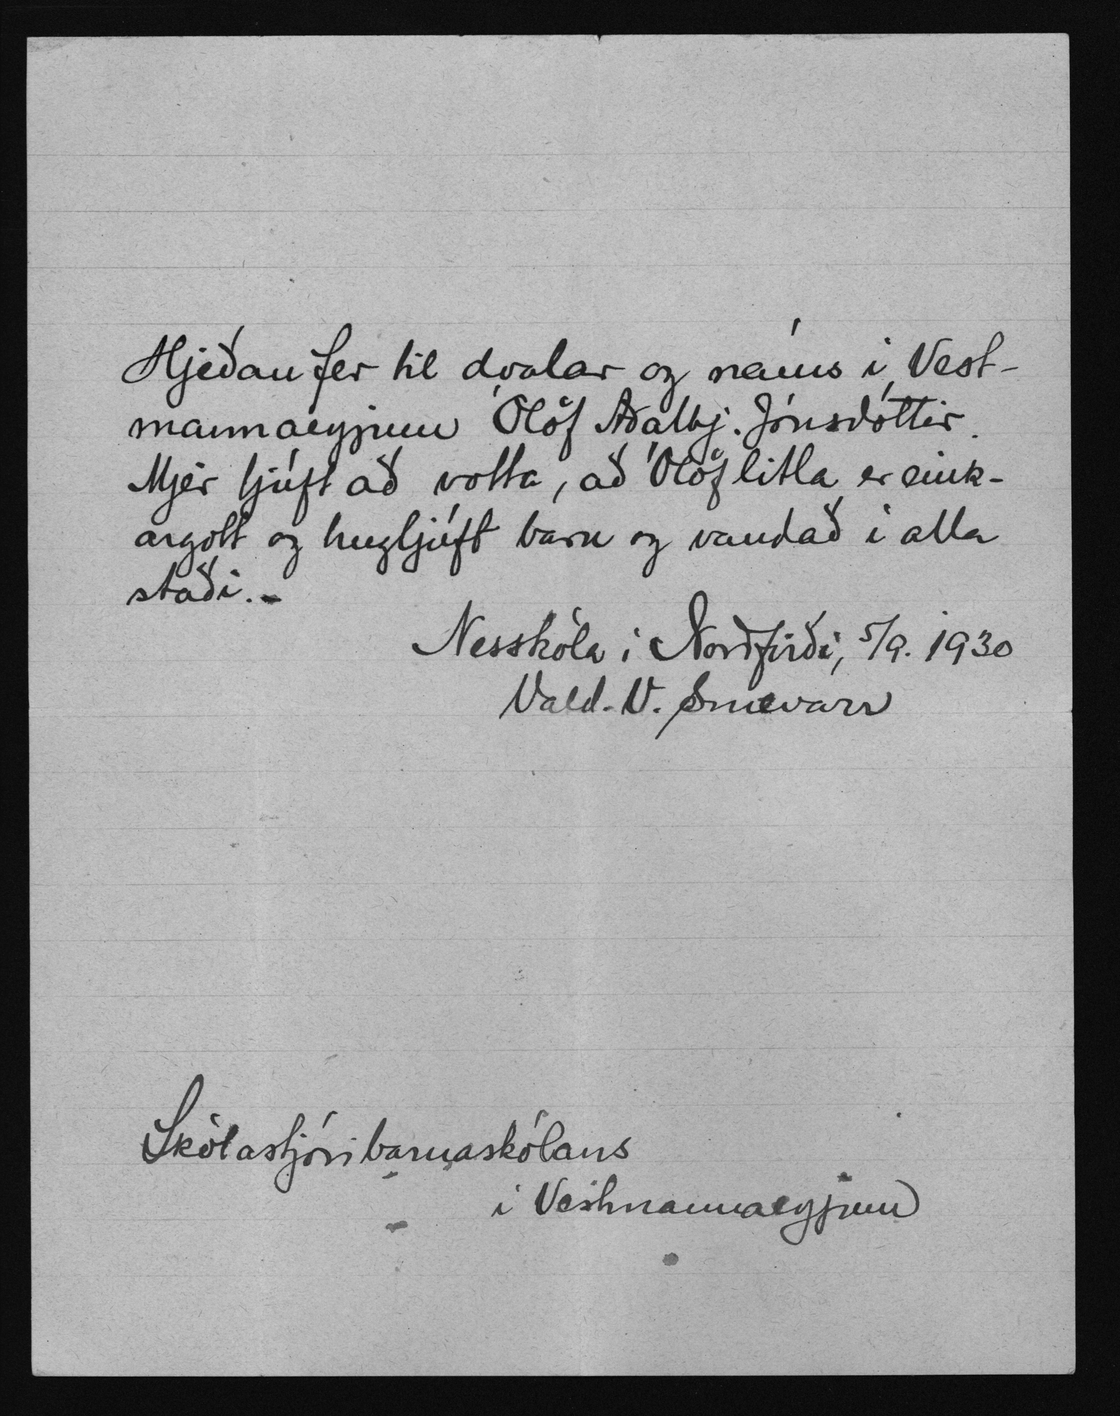 Hjeðan fer til dvalar og náms í Vest-
mannaeyjum Ólöf Aðalbj. Jónsdóttir.
Mjer ljúft að votta, að Ólöf litla er eink-
argott og hugljúft barn og vandað í alla
staði. -
Nesskóla í Norðfirði, 5/9. 1930
Vald. V. Snævarr
Skólastjóri barnaskólans
í Vestmannaeyjum